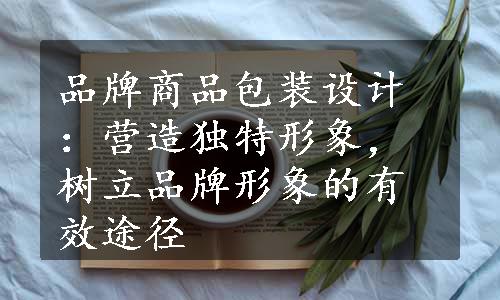 品牌商品包装设计
：营造独特形象，
树立品牌形象的有
效途径